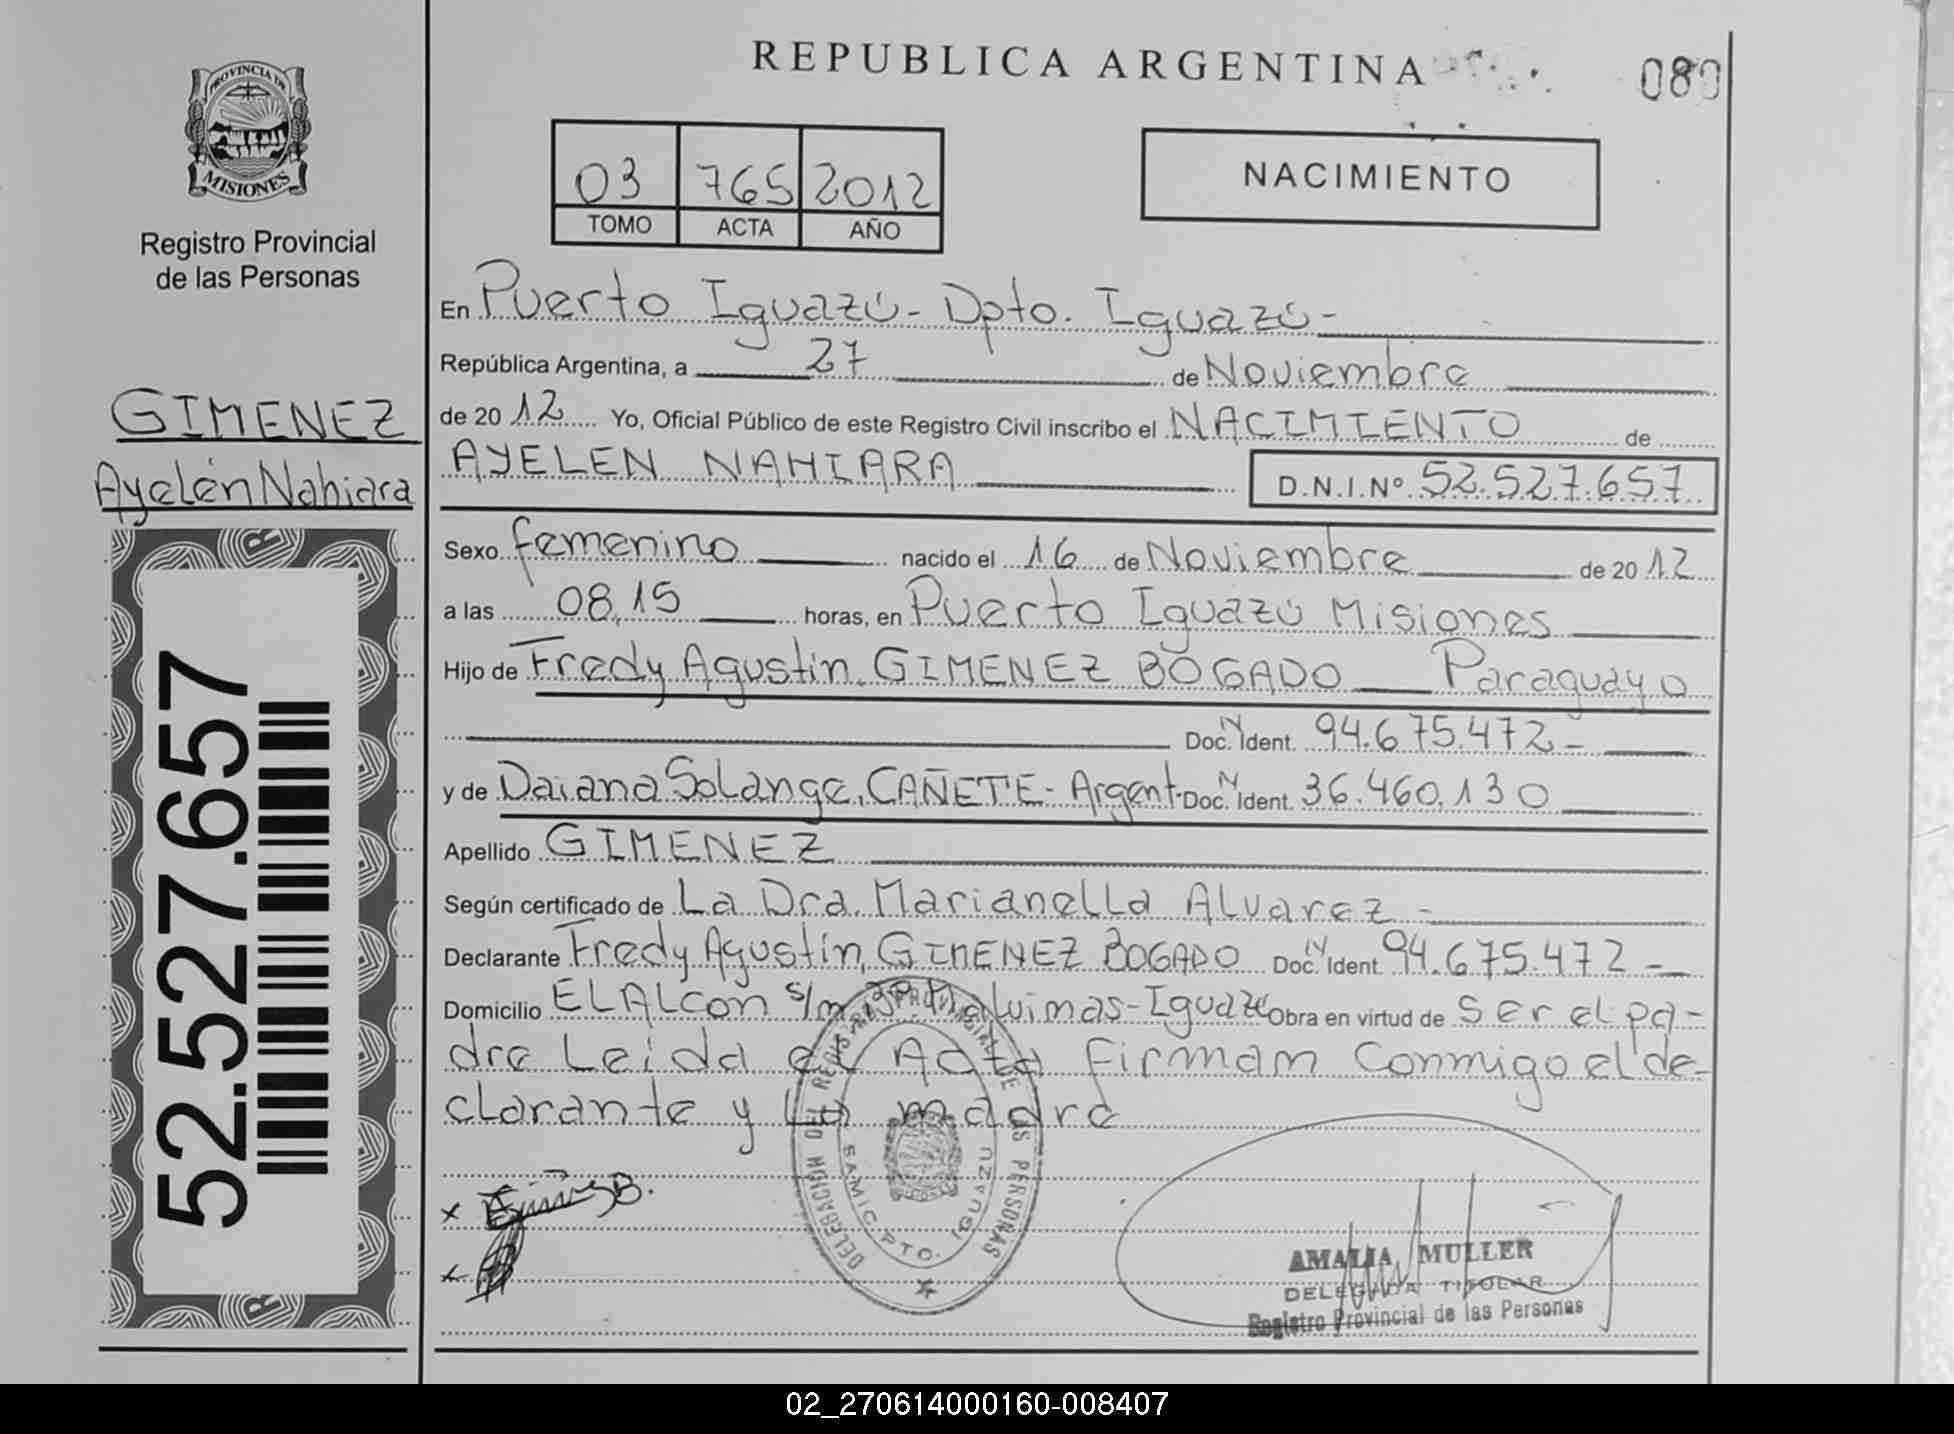 PROVINCIA DE
MISIONES
Registro Provincial
de las Personas
GIMENEZ
Ayelén Nahiara
52.527.657
REPUBLICA ARGENTINA
080
03 765 2012
TOMO ACTA AÑO
NACIMIENTO
En Puerto Iguazú - Dpto. Iguazú -
República Argentina, a 27 de Noviembre
de 20 12 Yo, Oficial Público de este Registro Civil inscribo el NACIMIENTO de
AYELEN NAHIARA D.N.I.Nº 52.527.657
Sexo femenino nacido el 16 de Noviembre de 20 12
a las 08,15 horas, en Puerto Iguazú Misiones
Hijo de Fredy Agustín, GIMENEZ BOGADO Paraguayo
Doc. N Ident. 94.675.472 -
y de Daiana Solange, CAÑETE - Argent. Doc. N Ident. 36.460.130
Apellido GIMENEZ
Según certificado de La Dra. Marianella Alvarez -
Declarante Fredy Agustín, GIMENEZ BOGADO Doc. N Ident. 94.675.472 -
Domicilio EL ALCON s/n Malvinas - Iguazú Obra en virtud de ser el pa-
dre Leida el Acta Firman Conmigo el de-
clarante y la madre
x
x
DELEGACION DEL REGISTRO PROVINCIAL DE LAS PERSONAS
DPTO. IGUAZU
AMALIA MULLER
DELEGADA TITULAR
Registro Provincial de las Personas
02_270614000160-008407